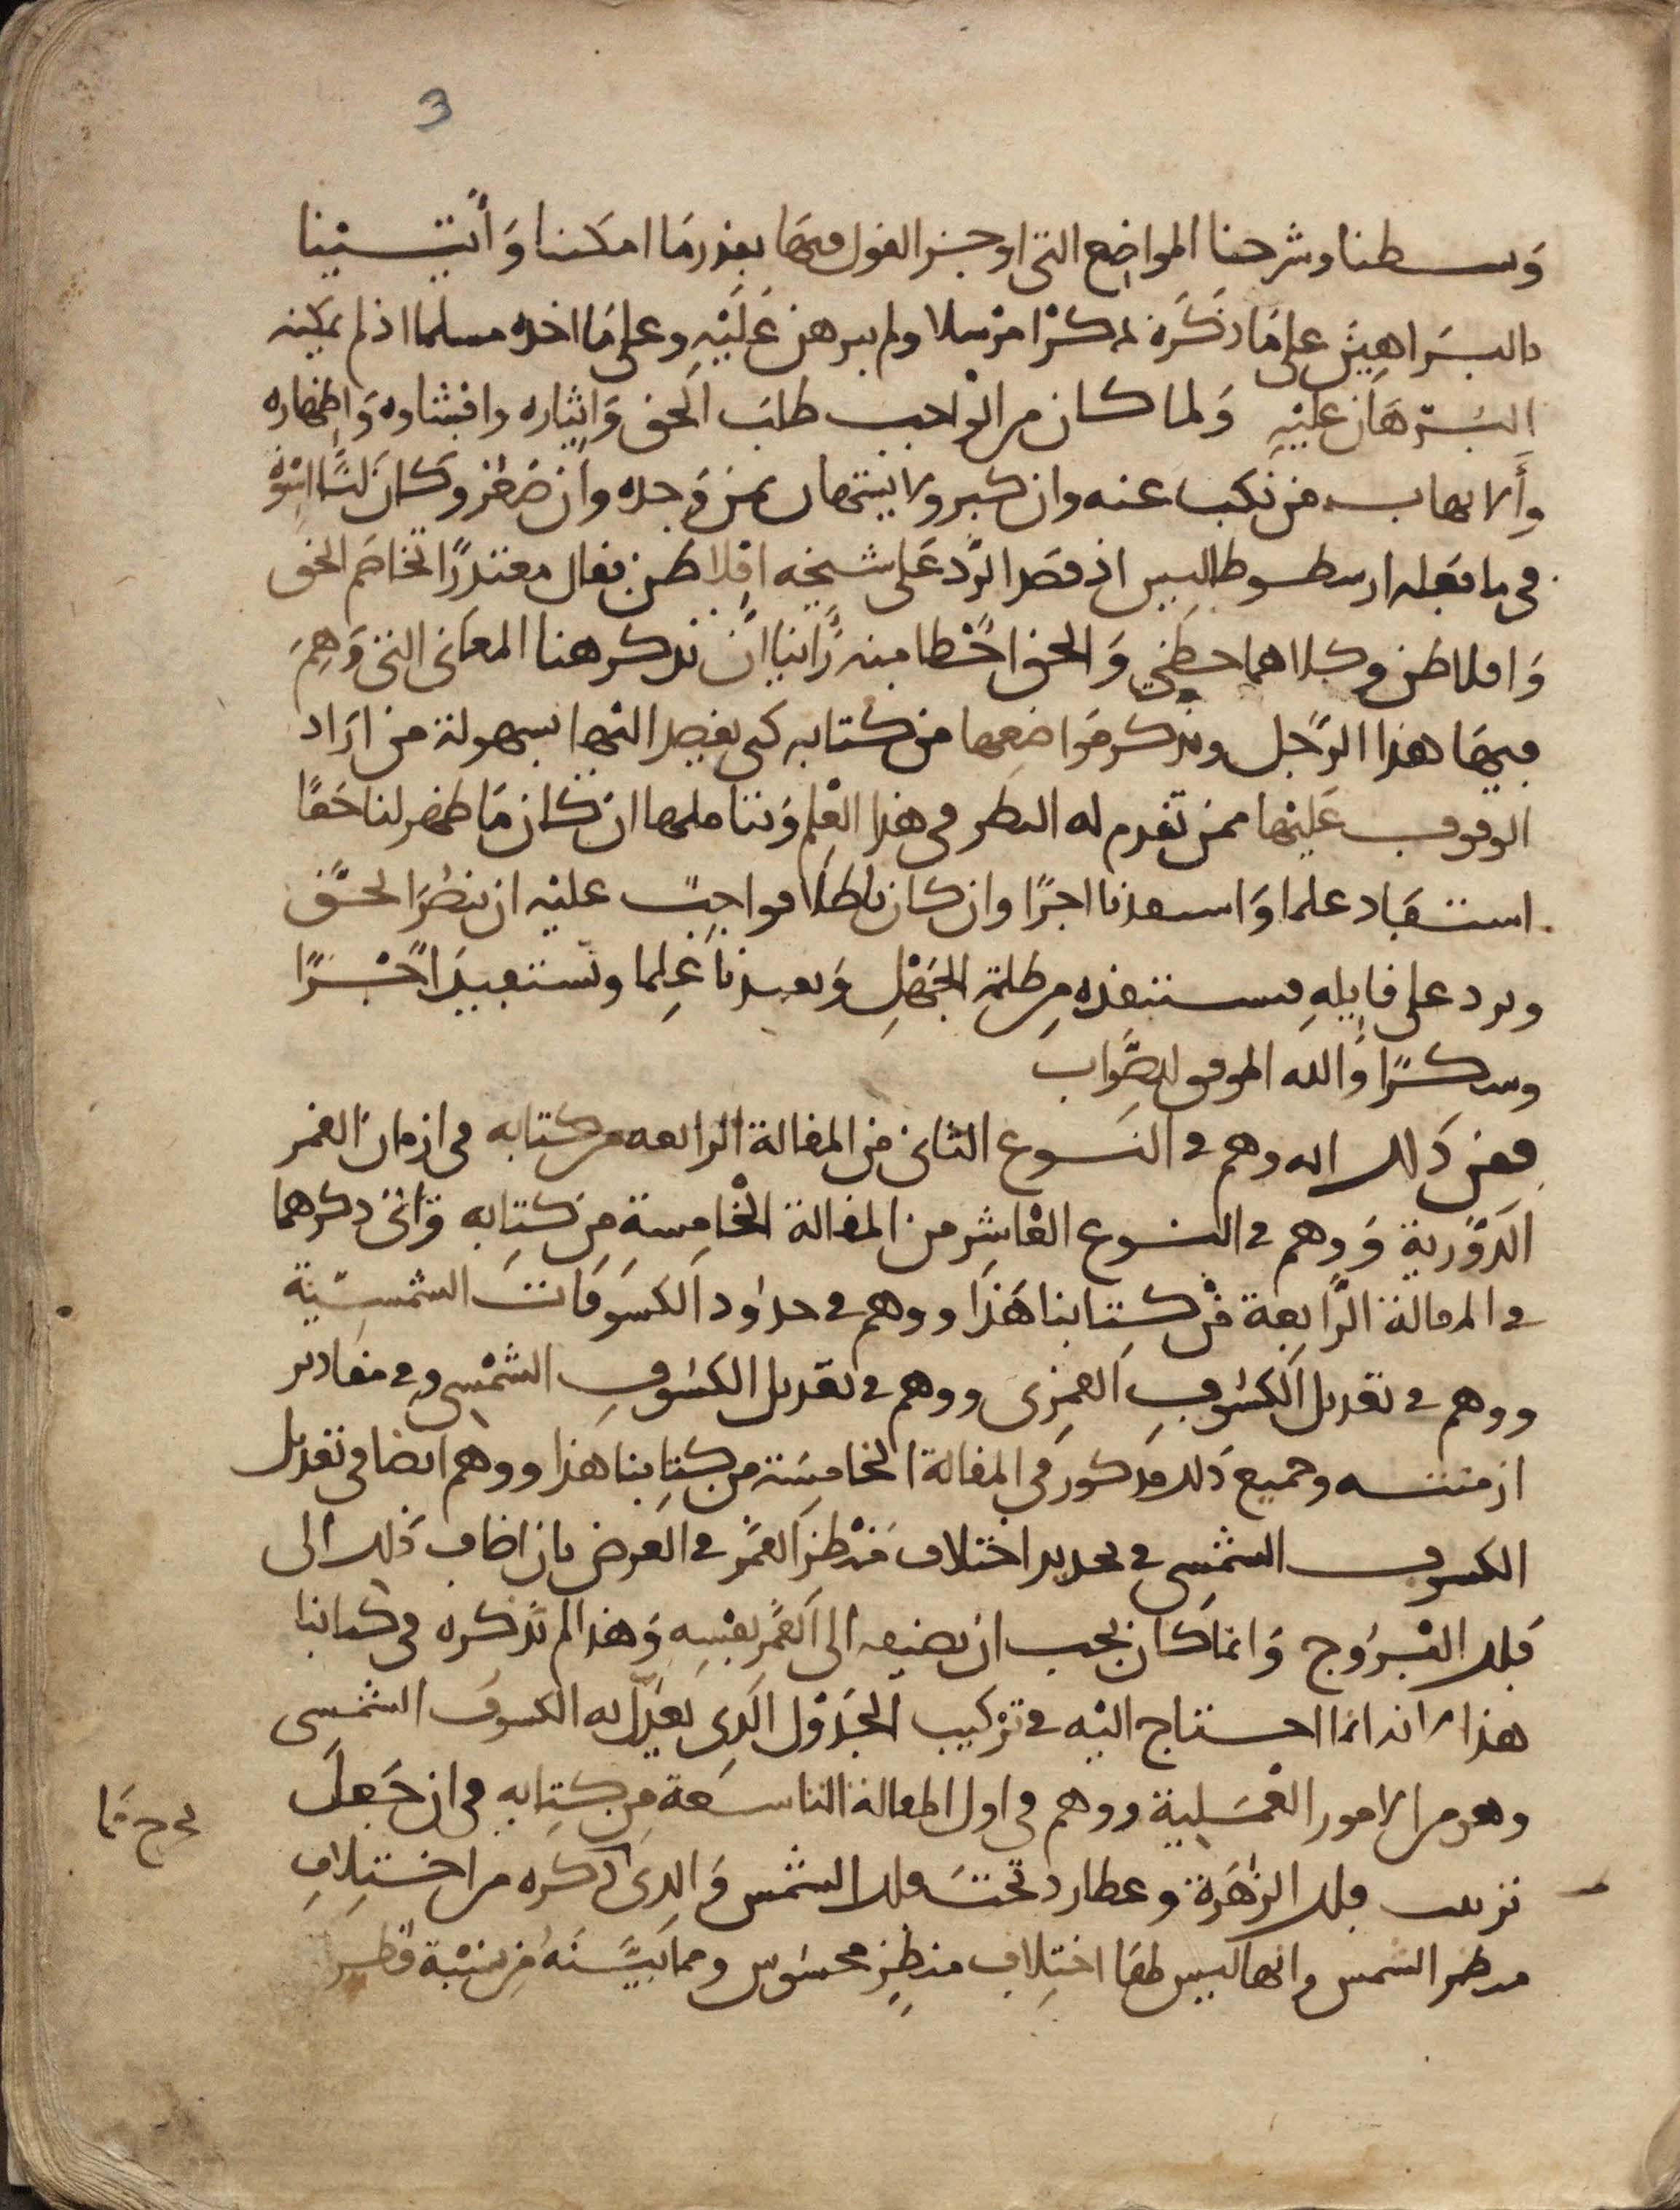 3
وبسطنا وشرحنا المواضع التي اوجز القول فيها بقدر ما امكننا وأتينا
بالبراهين على ما ذكره ذكرا مرسلا ولم يبرهن عليه وعلى ما اخذه مسلما اذ لم يمكنه
البرهان عليه ولما كان من الواجب طلب الحق وايثاره وافشاوه واظهاره
وألا يهاب من نكب عنه وان كبر ولا يستهان بمن وجده وان صغر وكان لنا اسوة
في ما فعله ارسطوطاليس اذ قصد الرد على شيخه افلاطن فقال معتذرا تخاصم الحق
وافلاطن وكلاهما حظي والحق احظا منه رأينا ان نذكر هنا المعاني التي وهم
فيها هذا الرجل ونذكر مواضعها من كتابه كي يقصد اليها بسهولة من اراد
الوقوف عليها ممن تقدم له النظر في هذا العلم ونتاملها ان كان ما ظهر لنا حقا
استفاد علما واسعدنا اجرا وان كان باطلا فواجب عليه ان ينظر الحق
ويرد على قايله فيستنقذه من ظلمة الجهل ويعيدنا علما وتستفيد اجرا
وشكرا والله الموفق للصواب
فمن ذلك انه وهم في النوع الثاني من المقالة الرابعة من كتابه في ازمان القمر
الدورية ووهم في النوع العاشر من المقالة الخامسة من كتابه وأتى ذكرهما
في المقالة الرابعة من كتابنا هذا ووهم في حدود الكسوفات الشمسية
ووهم في تعديل الكسوف القمري ووهم في تعديل الكسوف الشمسي وفي مقادير
ازمنته وجميع ذلك مذكور في المقالة الخامسة من كتابنا هذا ووهم ايضا في تعديل
الكسوف الشمسي في تحديد اختلاف منظر القمر في العرض بان اضاف ذلك الى
فلك البروج وانما كان يجب ان يضيفه الى القمر نفسه وهذا لم نذكره في كتابنا
هذا لانه انما احتاج اليه في تركيب الجدول الذي يعدل به الكسوف الشمسي
وهو من الامور العملية ووهم في اول المقالة التاسعة من كتابه في ان جعل
ترتيب فلك الزهرة وعطارد تحت فلك الشمس والذي ذكره من اختلاف
منظر الشمس وانها ليس لهما اختلاف منظر محسوس ومما بينه من نسبة قطر